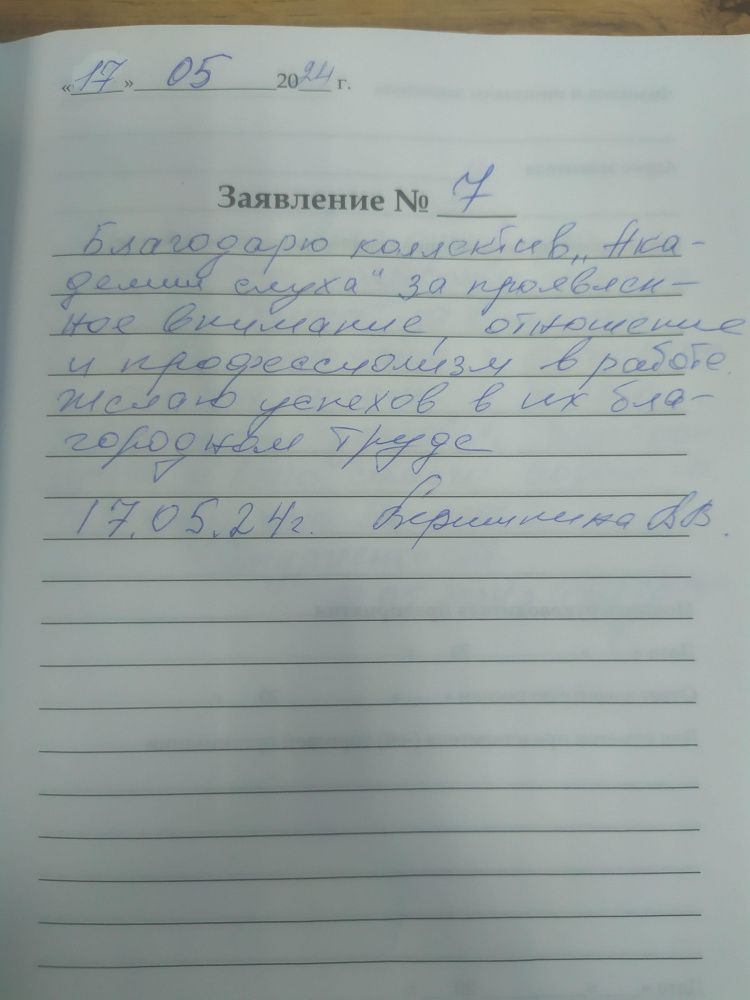 «17» 05 2024 г.
Заявление № 7
Благодарю коллектив „Ака-
демия слуха“ за проявлен-
ное внимание, отношение
и профессионализм в работе.
Желаю успехов в их бла-
городном труде
17.05.24г. ВВ.